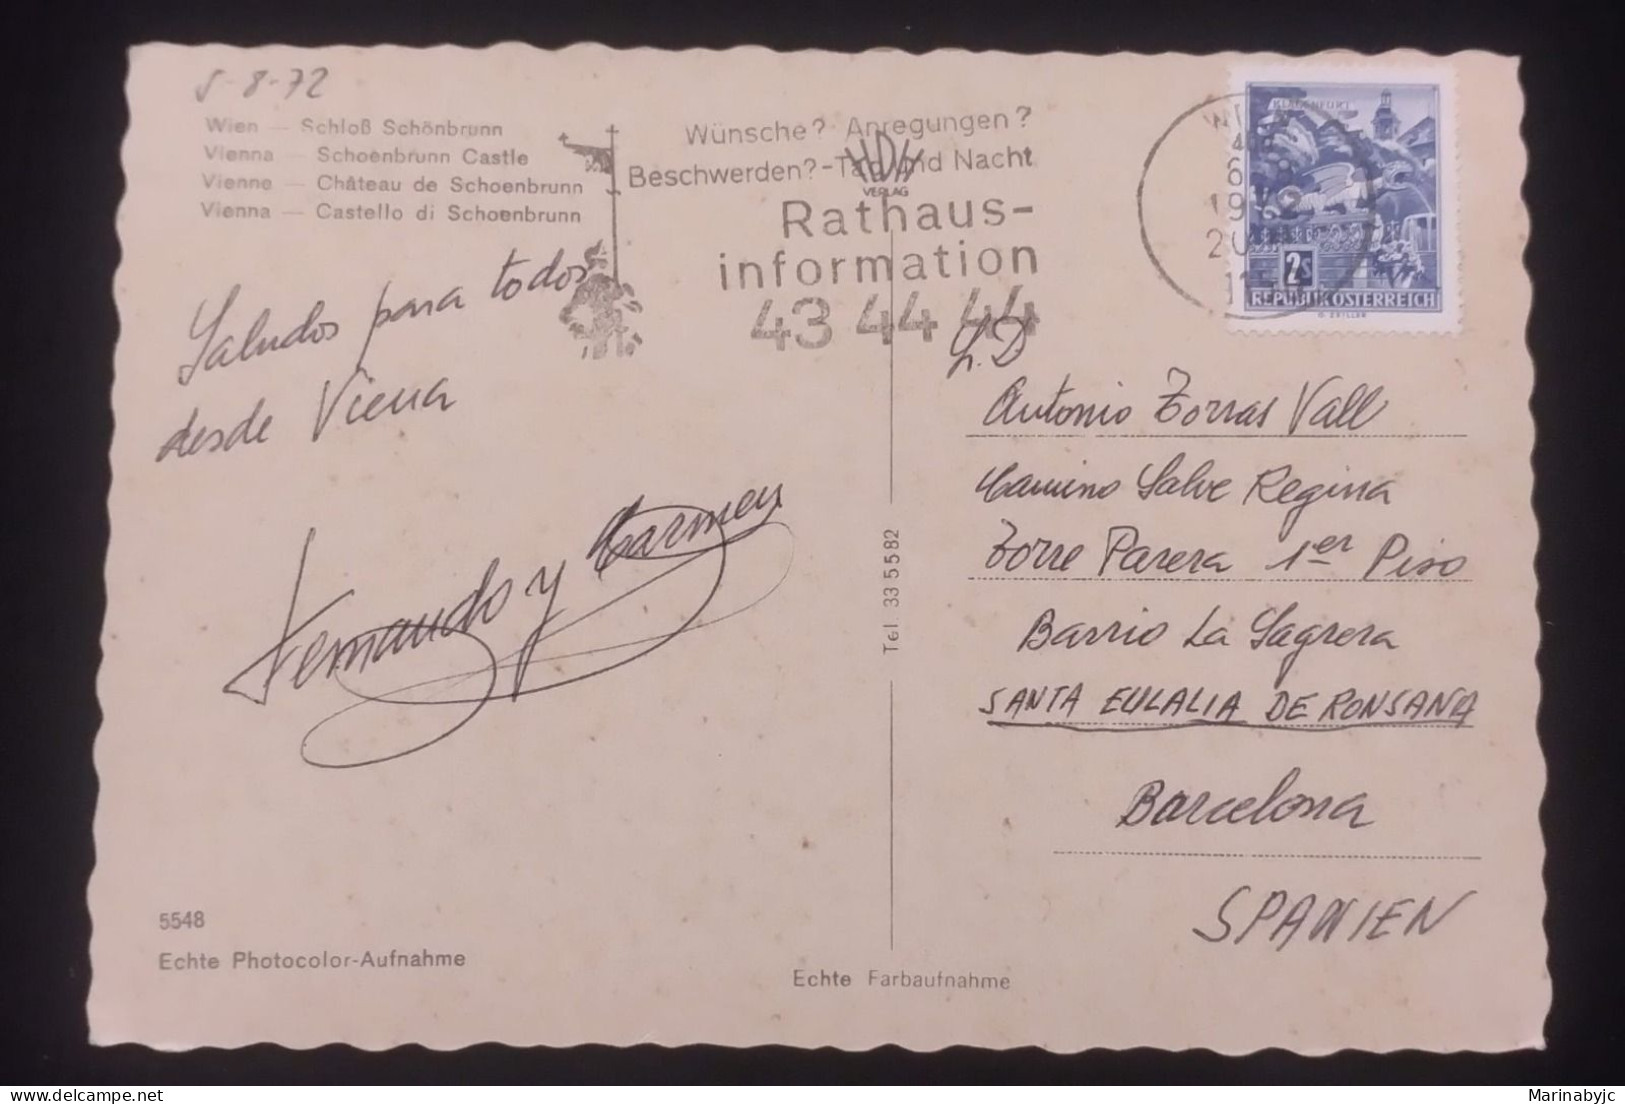 5-8-72
Wien — Schloß Schönbrunn
Vienna — Schoenbrunn Castle
Vienne — Château de Schoenbrunn
Vienna — Castello di Schoenbrunn
Wünsche? Anregungen?
Beschwerden?-Tag und Nacht
Rathaus-
information
43 44 44
HDH
VERLAG
WIEN
1972
KLAGENFURT
2S
REPUBLIK ÖSTERREICH
Saludos para todos
desde Viena
Fernando y Carmen
S.D
Antonio Torras Vall
Camino Salve Regina
Torre Parera 1er Piso
Barrio La Sagrera
SANTA EULALIA DE RONSANA
Barcelona
SPANIEN
Tel. 33 55 82
5548
Echte Photocolor-Aufnahme
Echte Farbaufnahme
Marinabyjc